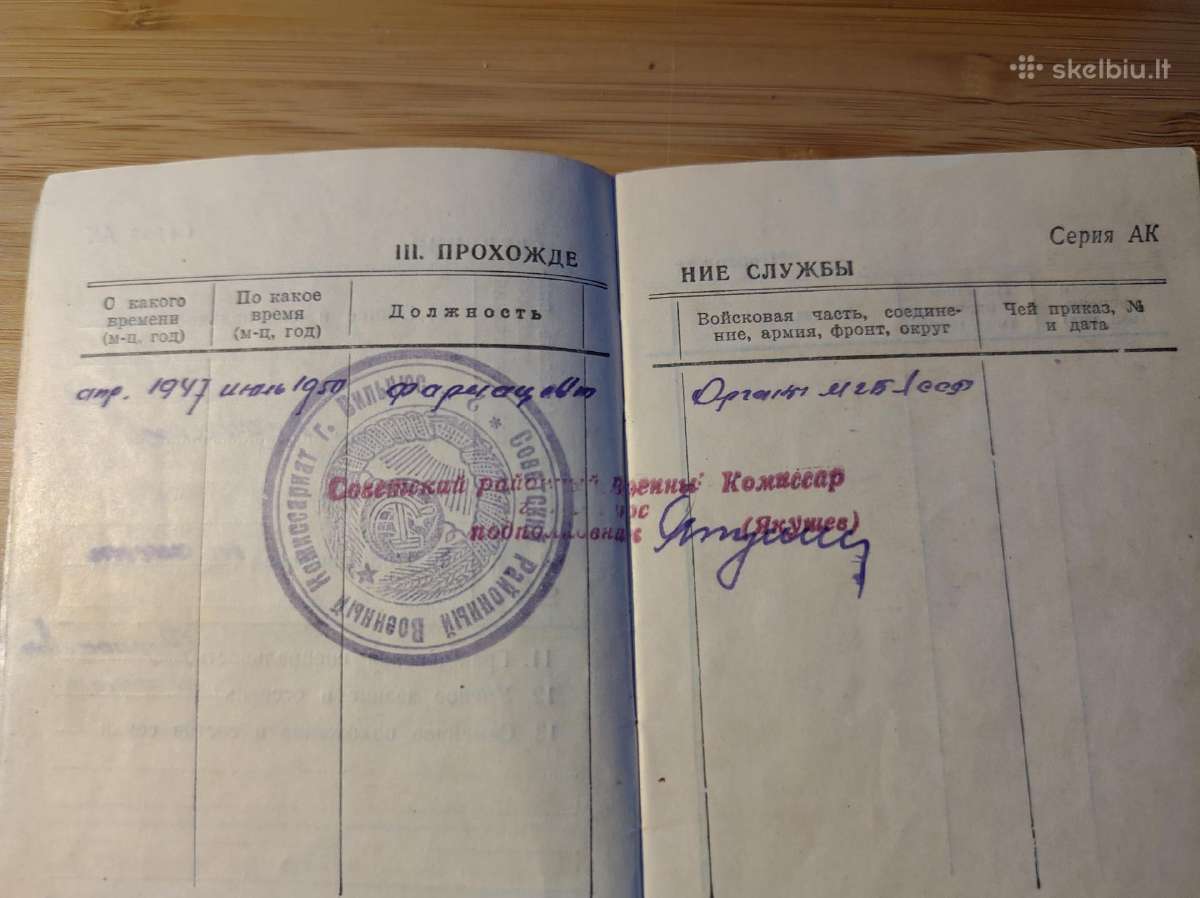 skelbiu.lt
Серия АК
III. ПРОХОЖДЕ
НИЕ СЛУЖБЫ
С какого
времени
(м-ц, год)
По какое
время
(м-ц, год)
Должность
Войсковая часть, соедине-
ние, армия, фронт, округ
Чей приказ, №
и дата
апр. 1947 июль 1950 фармацевт
Органы МГБ ЛССР
Советский районный Военный Комиссар
подполковник (Якушев)
Советский Районный Военный Комиссариат г. Вильнюс